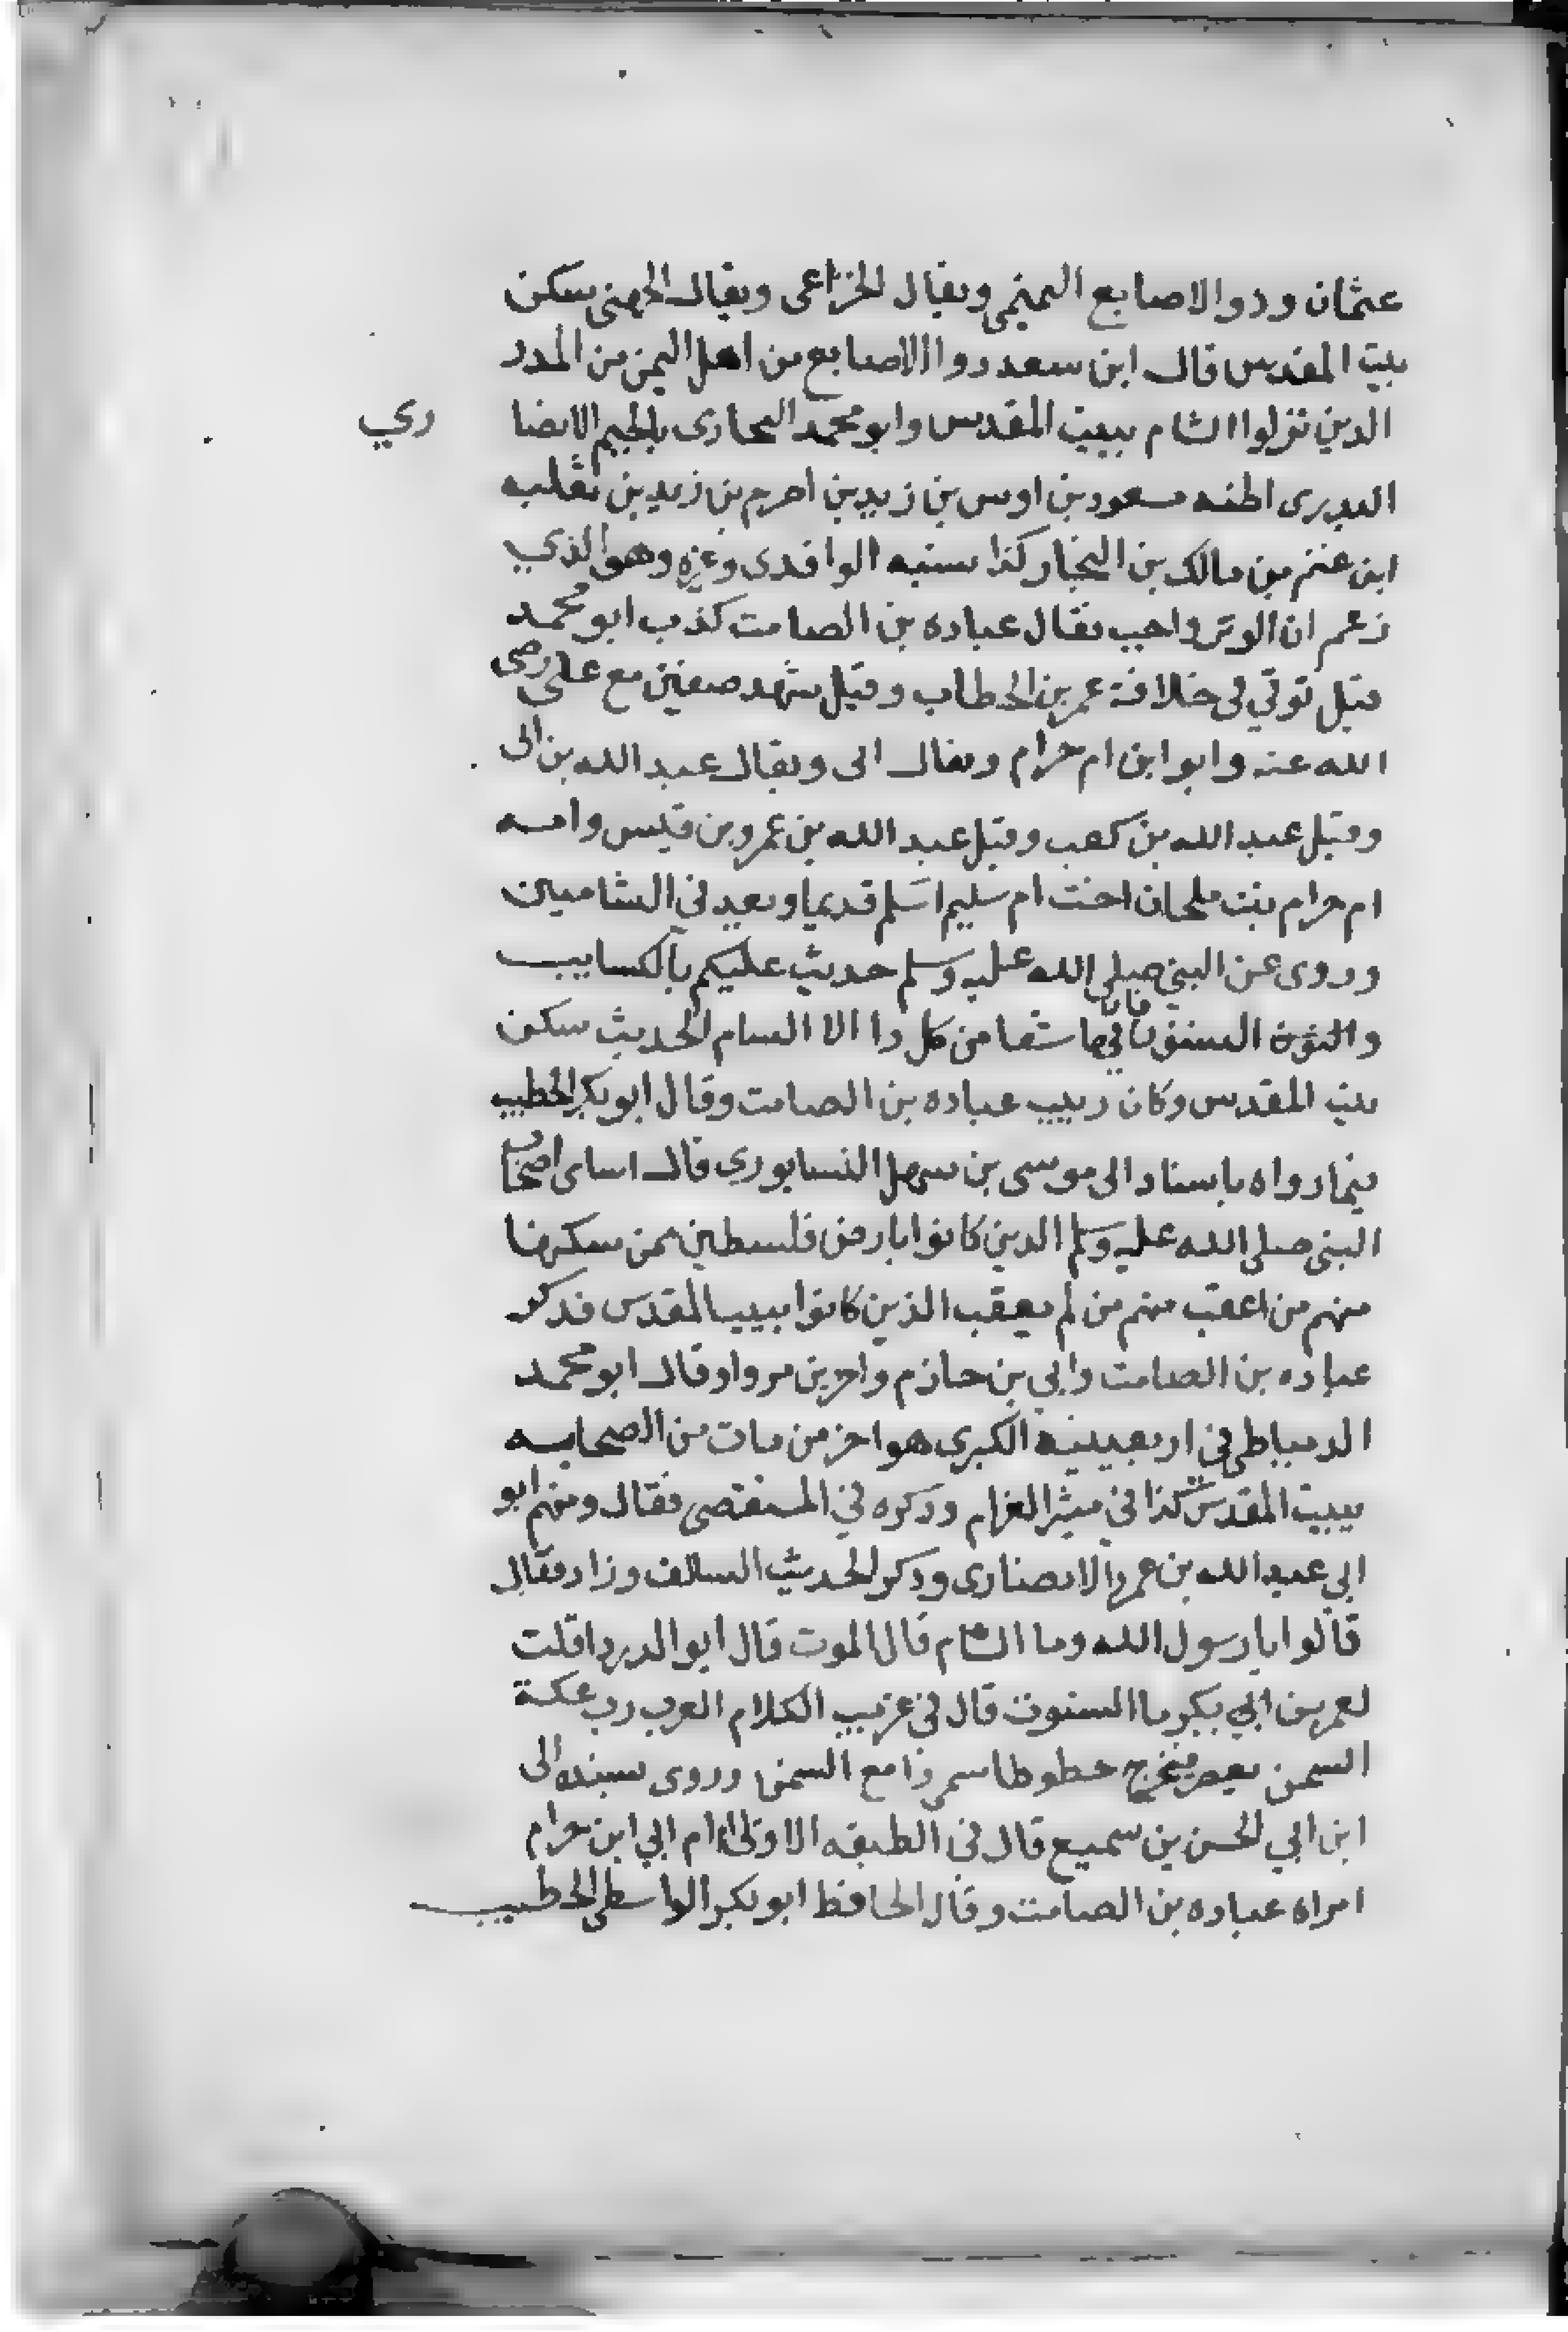 عثمان ودوالاصابع التميمي ويقال الخزاعى ويقال الجهنى سكن
بيت المقدس قال ابن سعد دواالاصابع من اهل اليمن من المدد
الدين نزلوا الشام ببيت المقدس وابو محمد البحارى بالجيم الانصا
ري
البدرى اظنه مسعود بن اوس بن زيد بن اصرم بن زيد بن ثعلبه
ابن غنم بن مالك بن النجار كذا نسبه الواقدى وغيره وهو الذي
زعم ان الوتر واجب فقال عباده بن الصامت كذب ابو محمد
قيل توفي في خلافة عمر بن الخطاب وقيل شهد صفين مع على رضى
الله عنه وابو ابن ام حرام ويقال ابى ويقال عبد الله بن ابى
وقيل عبد الله بن كعب وقيل عبد الله بن عمرو بن قيس وامه
ام حرام بنت ملحان اخت ام سليم اسلم قديما ويعد في الشاميين
وروى عن النبي صلى الله عليه وسلم حديث عليكم بالسكسابيب
والسنوت فان فيها شفا من كل دا الا السام الحديث سكن
بيت المقدس وكان ربيب عباده بن الصامت وقال ابو بكر الخطيب
فيما رواه باسناد الى موسى بن سهل النسابوري قال اسامى اصحاب
النبى صلى الله عليه وسلم الدين كانوا بارض فلسطين ممن سكنها
منهم من اعقب منهم من لم يعقب الذين كانوا ببيت المقدس فدكر
عباده بن الصامت وابي بن حازم واخرين مرواو قال ابو محمد
الدمياطي في اربعينيه الكبرى هو اخر من مات من الصحابه
ببيت المقدس كذا في مثير الغرام ودكره في المستقصى فقال ومنهم ابو
ابي عبد الله بن عمرو الانصارى ودكر الحديث السالف وزاد فقال
قالوا يا رسول الله وما السام قال الموت قال ابو الدردا قلت
لعمر بن ابي بكر ما السنوت قال في غريب الكلام العرب رب عكة
السمن يعصر فيخرج خطوطا سمر دا مع السمن وروى بسنده الى
ابن ابي الحسن بن سميع قال في الطبقه الاولى ام ابي ابن حرام
امراه عباده بن الصامت وقال الحافظ ابو بكر الواسطي الخطيب